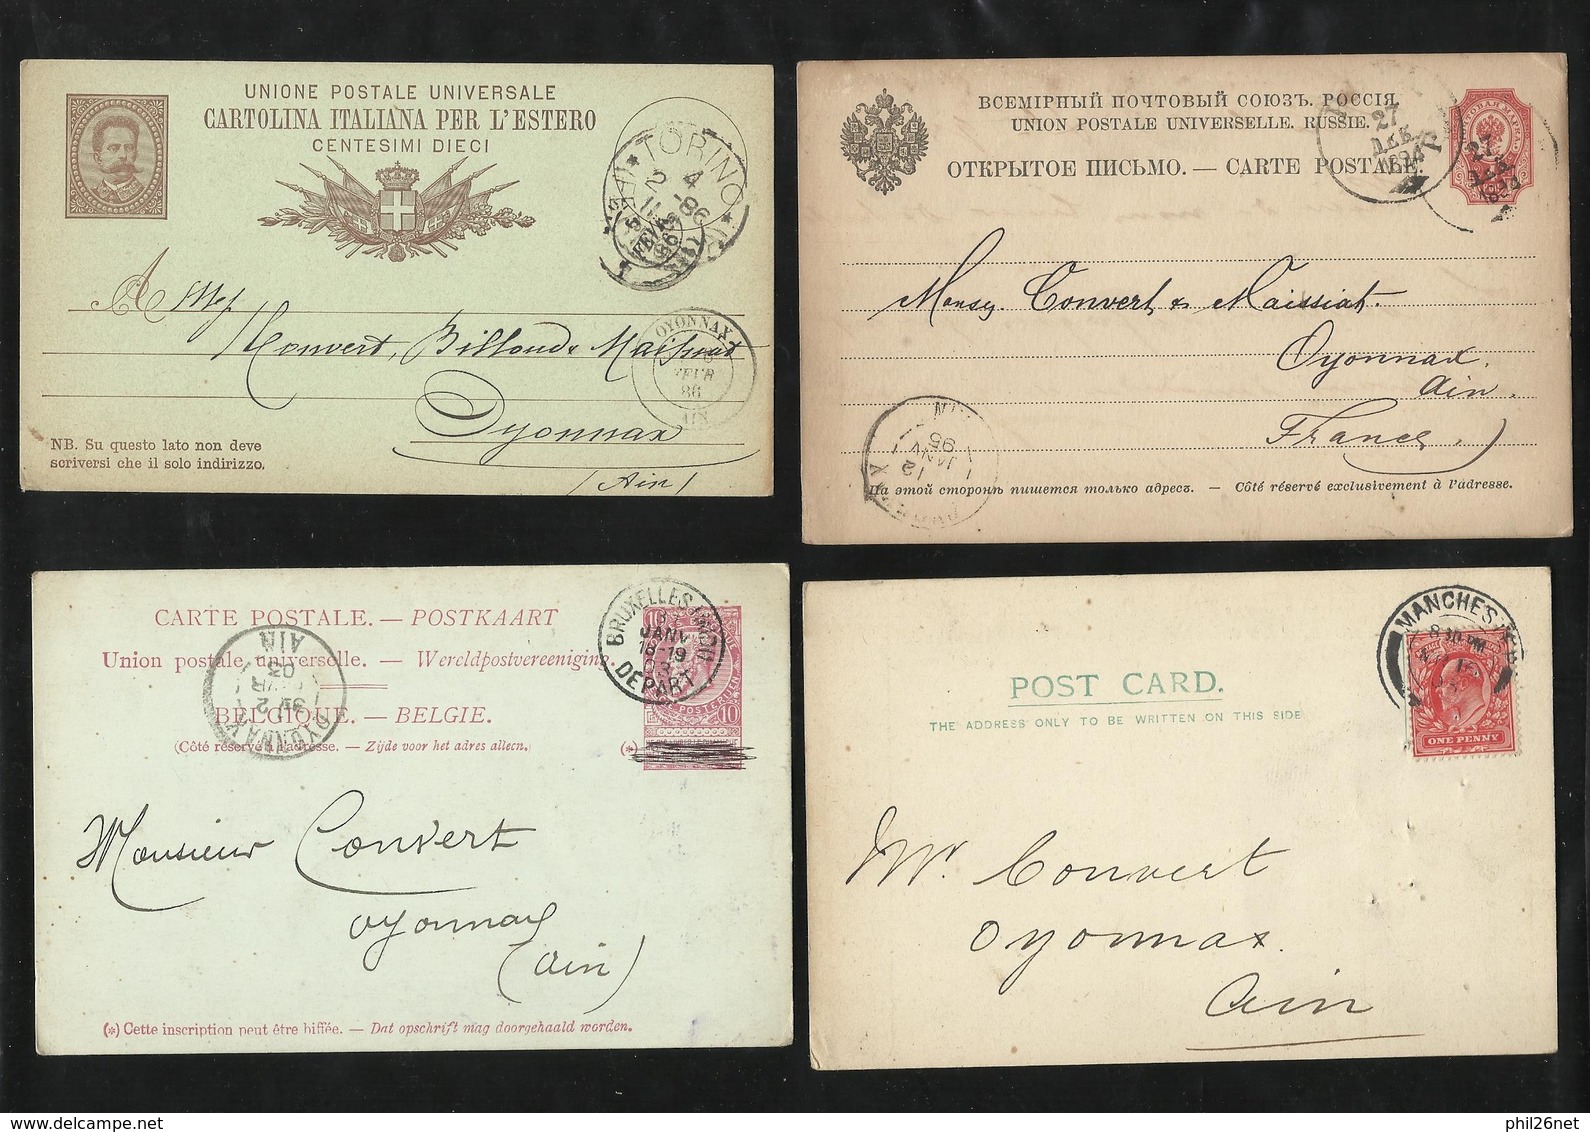 UNIONE POSTALE UNIVERSALE
CARTOLINA ITALIANA PER L'ESTERO
CENTESIMI DIECI
TORINO
2 4
86
A Mess
Convert, Billond & Maissiat
OYONNAX
FEVR
86
AIN
Oyonnax
(Ain)
NB. Su questo lato non deve
scriversi che il solo indirizzo.
ВСЕМІРНЫЙ ПОЧТОВЫЙ СОЮЗЪ. РОССІЯ.
UNION POSTALE UNIVERSELLE. RUSSIE.
ОТКРЫТОЕ ПИСЬМО. — CARTE POSTALE.
27
ДЕК
1894
27
ДЕК
1894
Convert & Maissiat.
Oyonnax.
Ain.
France.)
AIN
12
JANV
95
На этой сторонѣ пишется только адресъ. — Côté réservé exclusivement à l'adresse.
CARTE POSTALE. — POSTKAART
Union postale universelle. — Wereldpostvereeniging.
BELGIQUE. — BELGIE.
(Côté réservé à l'adresse. — Zijde voor het adres alleen.)
BRUXELLES
JANV
18-19
03
DEPART
10
POSTERIJEN
10
(*)
AIN
03
OYONNAX
Monsieur Convert
Oyonnax
(Ain)
(*) Cette inscription peut être biffée. — Dat opschrift mag doorgehaald worden.
POST CARD.
THE ADDRESS ONLY TO BE WRITTEN ON THIS SIDE
MANCHESTER
ONE PENNY
Mr Convert
Oyonnax.
Ain
phil26net
delcampe.net